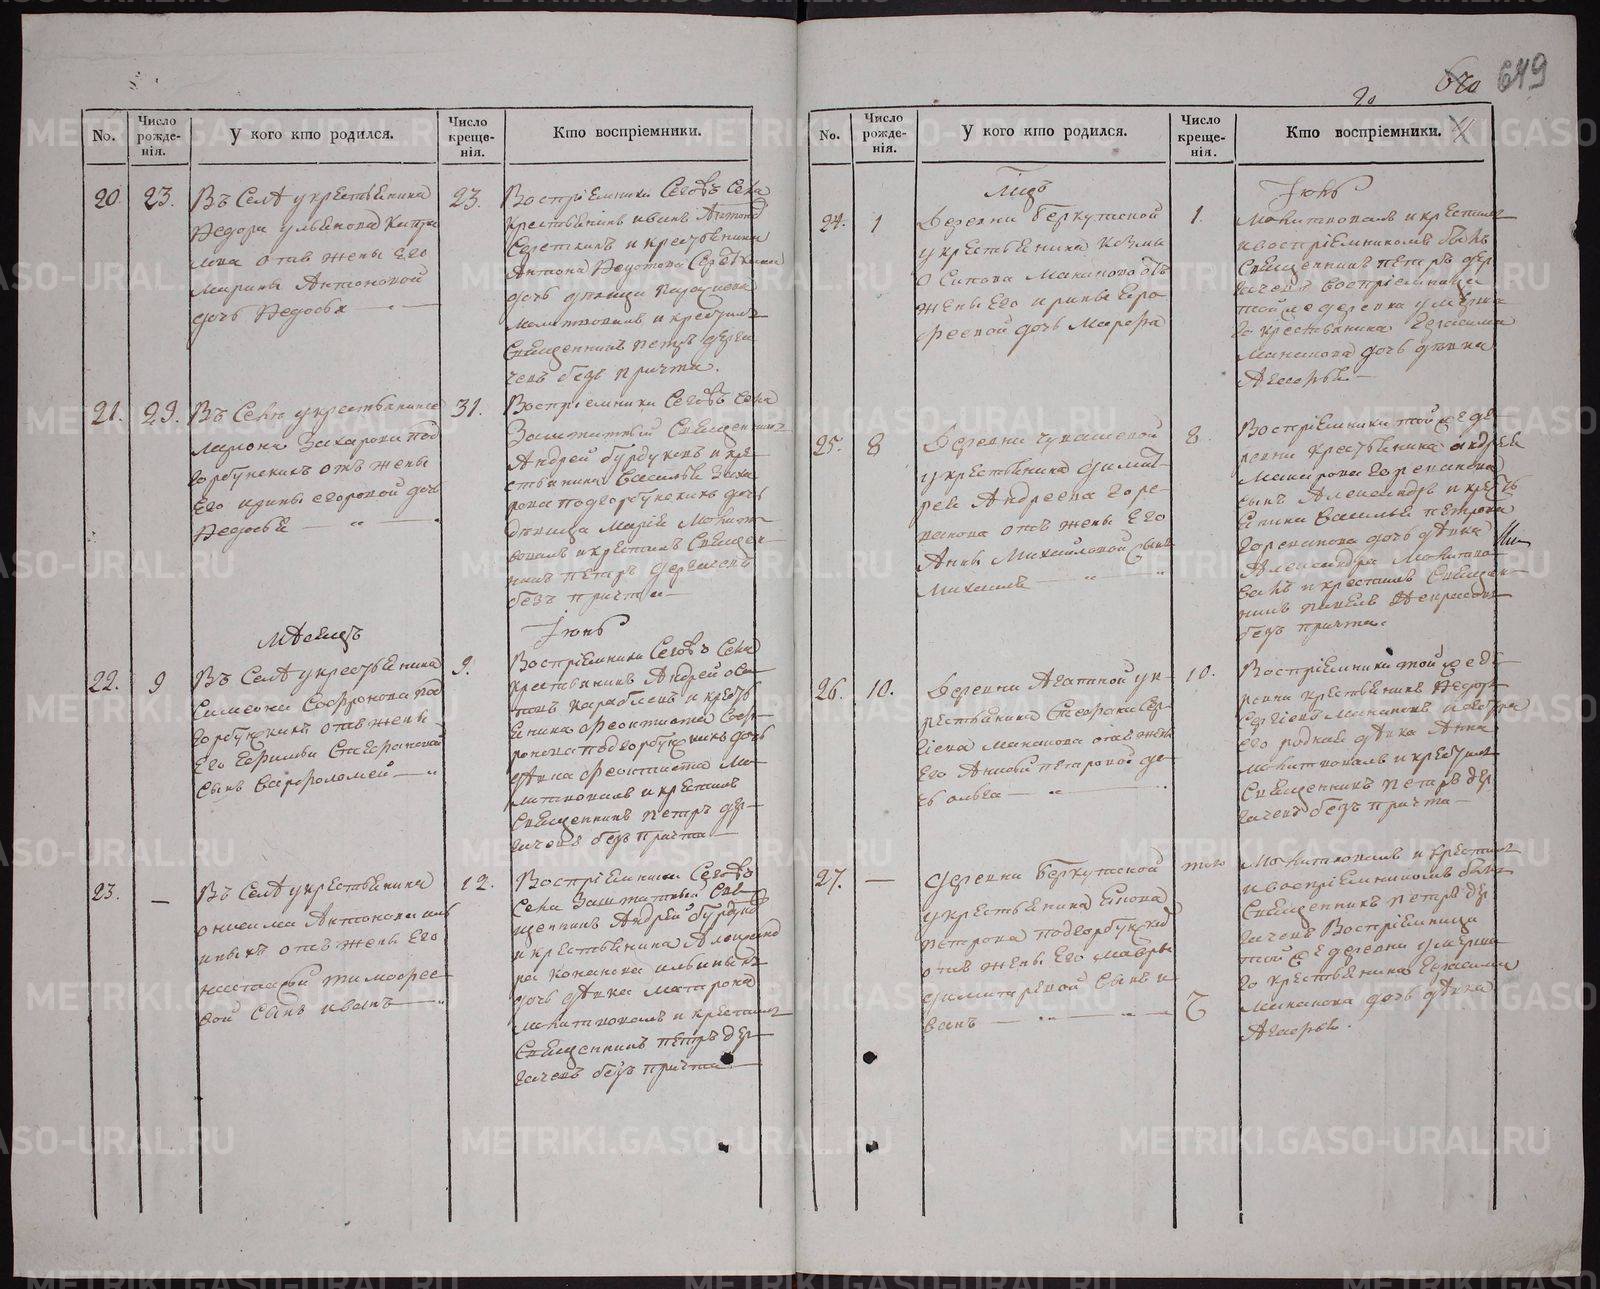 No.
Число рожде-нія.
У кого кто родился.
Число креще-нія.
Кто воспріемники.
20
23.
Въ Селѣ у крестьянина
Ѳедора ульянова
отъ жены Его
Марины Антоновой
дочь Ѳедосья
23.
Воспріемники Сеговъ Села
крестьянинъ иванъ
и крестьянина
Антона
дочь дѣвица
молитвовалъ и крестилъ
Священникъ петръ дерга
чевъ безъ причта.
21.
29.
Въ Селѣ у крестьянина
Захарова под
горбунскихъ отъ жены
Его ирины егоровой дочь
Ѳедосья
31.
Воспріемники Сеговъ Села
Заштатный Священникъ
Андрей бурдуковъ и кре
стьянина Василья Заха
рова подгорбунскихъ дочь
дѣвица Марія Молит
вовалъ и крестилъ Священ
никъ петръ дергачевъ
безъ причта
Мѣсяцъ
Іюнь
22.
9
Въ Селѣ у крестьянина
Симеона Софронова под
горбунскихъ отъ жены
Его Ефимьи Стефановой
Сынъ Варфоломей
9.
Воспріемники Сеговъ Села
крестьянинъ Андрей
и кресть
янина Феоктиста Соф
ронова подгорбунскихъ дочь
дѣвка Феоктиста Мо
литвовалъ и крестилъ
Священникъ петръ дер
гачевъ безъ причта
23.
—
Въ Селѣ у крестьянина
онисима Антонова иль
иныхъ отъ жены Его
настасьи тимофее
вой Сынъ иванъ
12.
Воспріемники Сеговъ
Села Заштатный Свя
щенникъ Андрей бурдуковъ
и крестьянина
ильиныхъ
дочь дѣвка матрона
молитвовалъ и крестилъ
Священникъ петръ дер
гачевъ безъ причта
649
No.
Число рожде-нія.
У кого кто родился.
Число креще-нія.
Кто воспріемники.
Іюнь
24.
1
Деревни Беркутской
у крестьянина козмы
Осипова Манакова отъ
жены Его ирины Еро
феевой дочь Марфа
1.
Молитвовалъ и крестилъ
и воспріемникомъ былъ
Священникъ петръ дер
гачевъ воспріемница
той же деревни умерша
го крестьянина Герасима
Манакова дочь дѣвка
Агафья
25.
8
Деревни чувашевой
у крестьянина димит
рея Андреева горе
ванова отъ жены Его
Анны Михайловой сынъ
Михаилъ
8.
Воспріемники той же де
ревни крестьянина андрея
Макарова Гореванова
сынъ Александръ и кресть
янина Василья петрова
Гореванова дочь дѣвка
Александра Молитво
валъ и крестилъ Священ
никъ павелъ Некрасовъ
безъ причта.
26.
10.
Деревни Агапиной у к
рестьянина Стефана Сер
гіева Манакова отъ жены
Его Анны петровой до
чь ольга
10.
Воспріемники той же де
ревни крестьянинъ Ѳедоръ
Сергіевъ Манаковъ и сестра
его родная дѣвка Анна
молитвовалъ и крестилъ
Священникъ петръ дер
гачевъ безъ причта
27.
—
Деревни Беркутской
у крестьянина
петрова подгорбунскихъ
отъ жены Его мавры
димитріевой Сынъ и
ванъ
того
Молитвовалъ и крестилъ
и воспріемникомъ былъ
Священникъ петръ дер
гачевъ Воспріемница
той же деревни умерша
го крестьянина Герасима
Манакова дочь дѣвка
Агафья.
METRIKI.GASO-URAL.RU